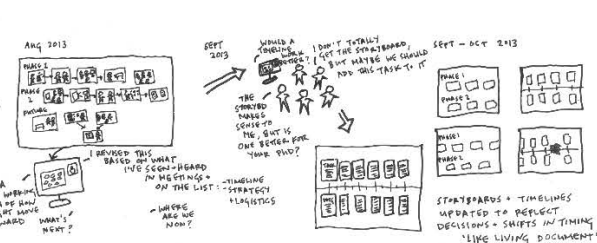 AUG 2013
PHASE 1
PHASE
2
FUTURE
I REVISED THIS
BASED ON WHAT
I'VE SEEN + HEARD
IN MEETINGS +
ON THE LIST:
-TIMELINE
-STRATEGY
+ LOGISTICS
A
WORKING
OF HOW
MOVE
WHAT'S
NEXT?
-WHERE
ARE WE
NOW?
SEPT
2013
WOULD A
TIMELINE
WORK
BETTER?
I DON'T TOTALLY
GET THE STORYBOARD,
BUT MAYBE WE SHOULD
ADD THIS TASK TO IT
THE
STORYBD
MAKES
SENSE TO
ME, BUT IS
ONE BETTER FOR
YOUR PHD?
TASK
SEPT - OCT 2013
PHASE 1
PHASE 2
PHASE 1
PHASE 2
STORYBOARDS + TIMELINES
UPDATED TO REFLECT
DECISIONS + SHIFTS IN TIMING
"LIKE LIVING DOCUMENT